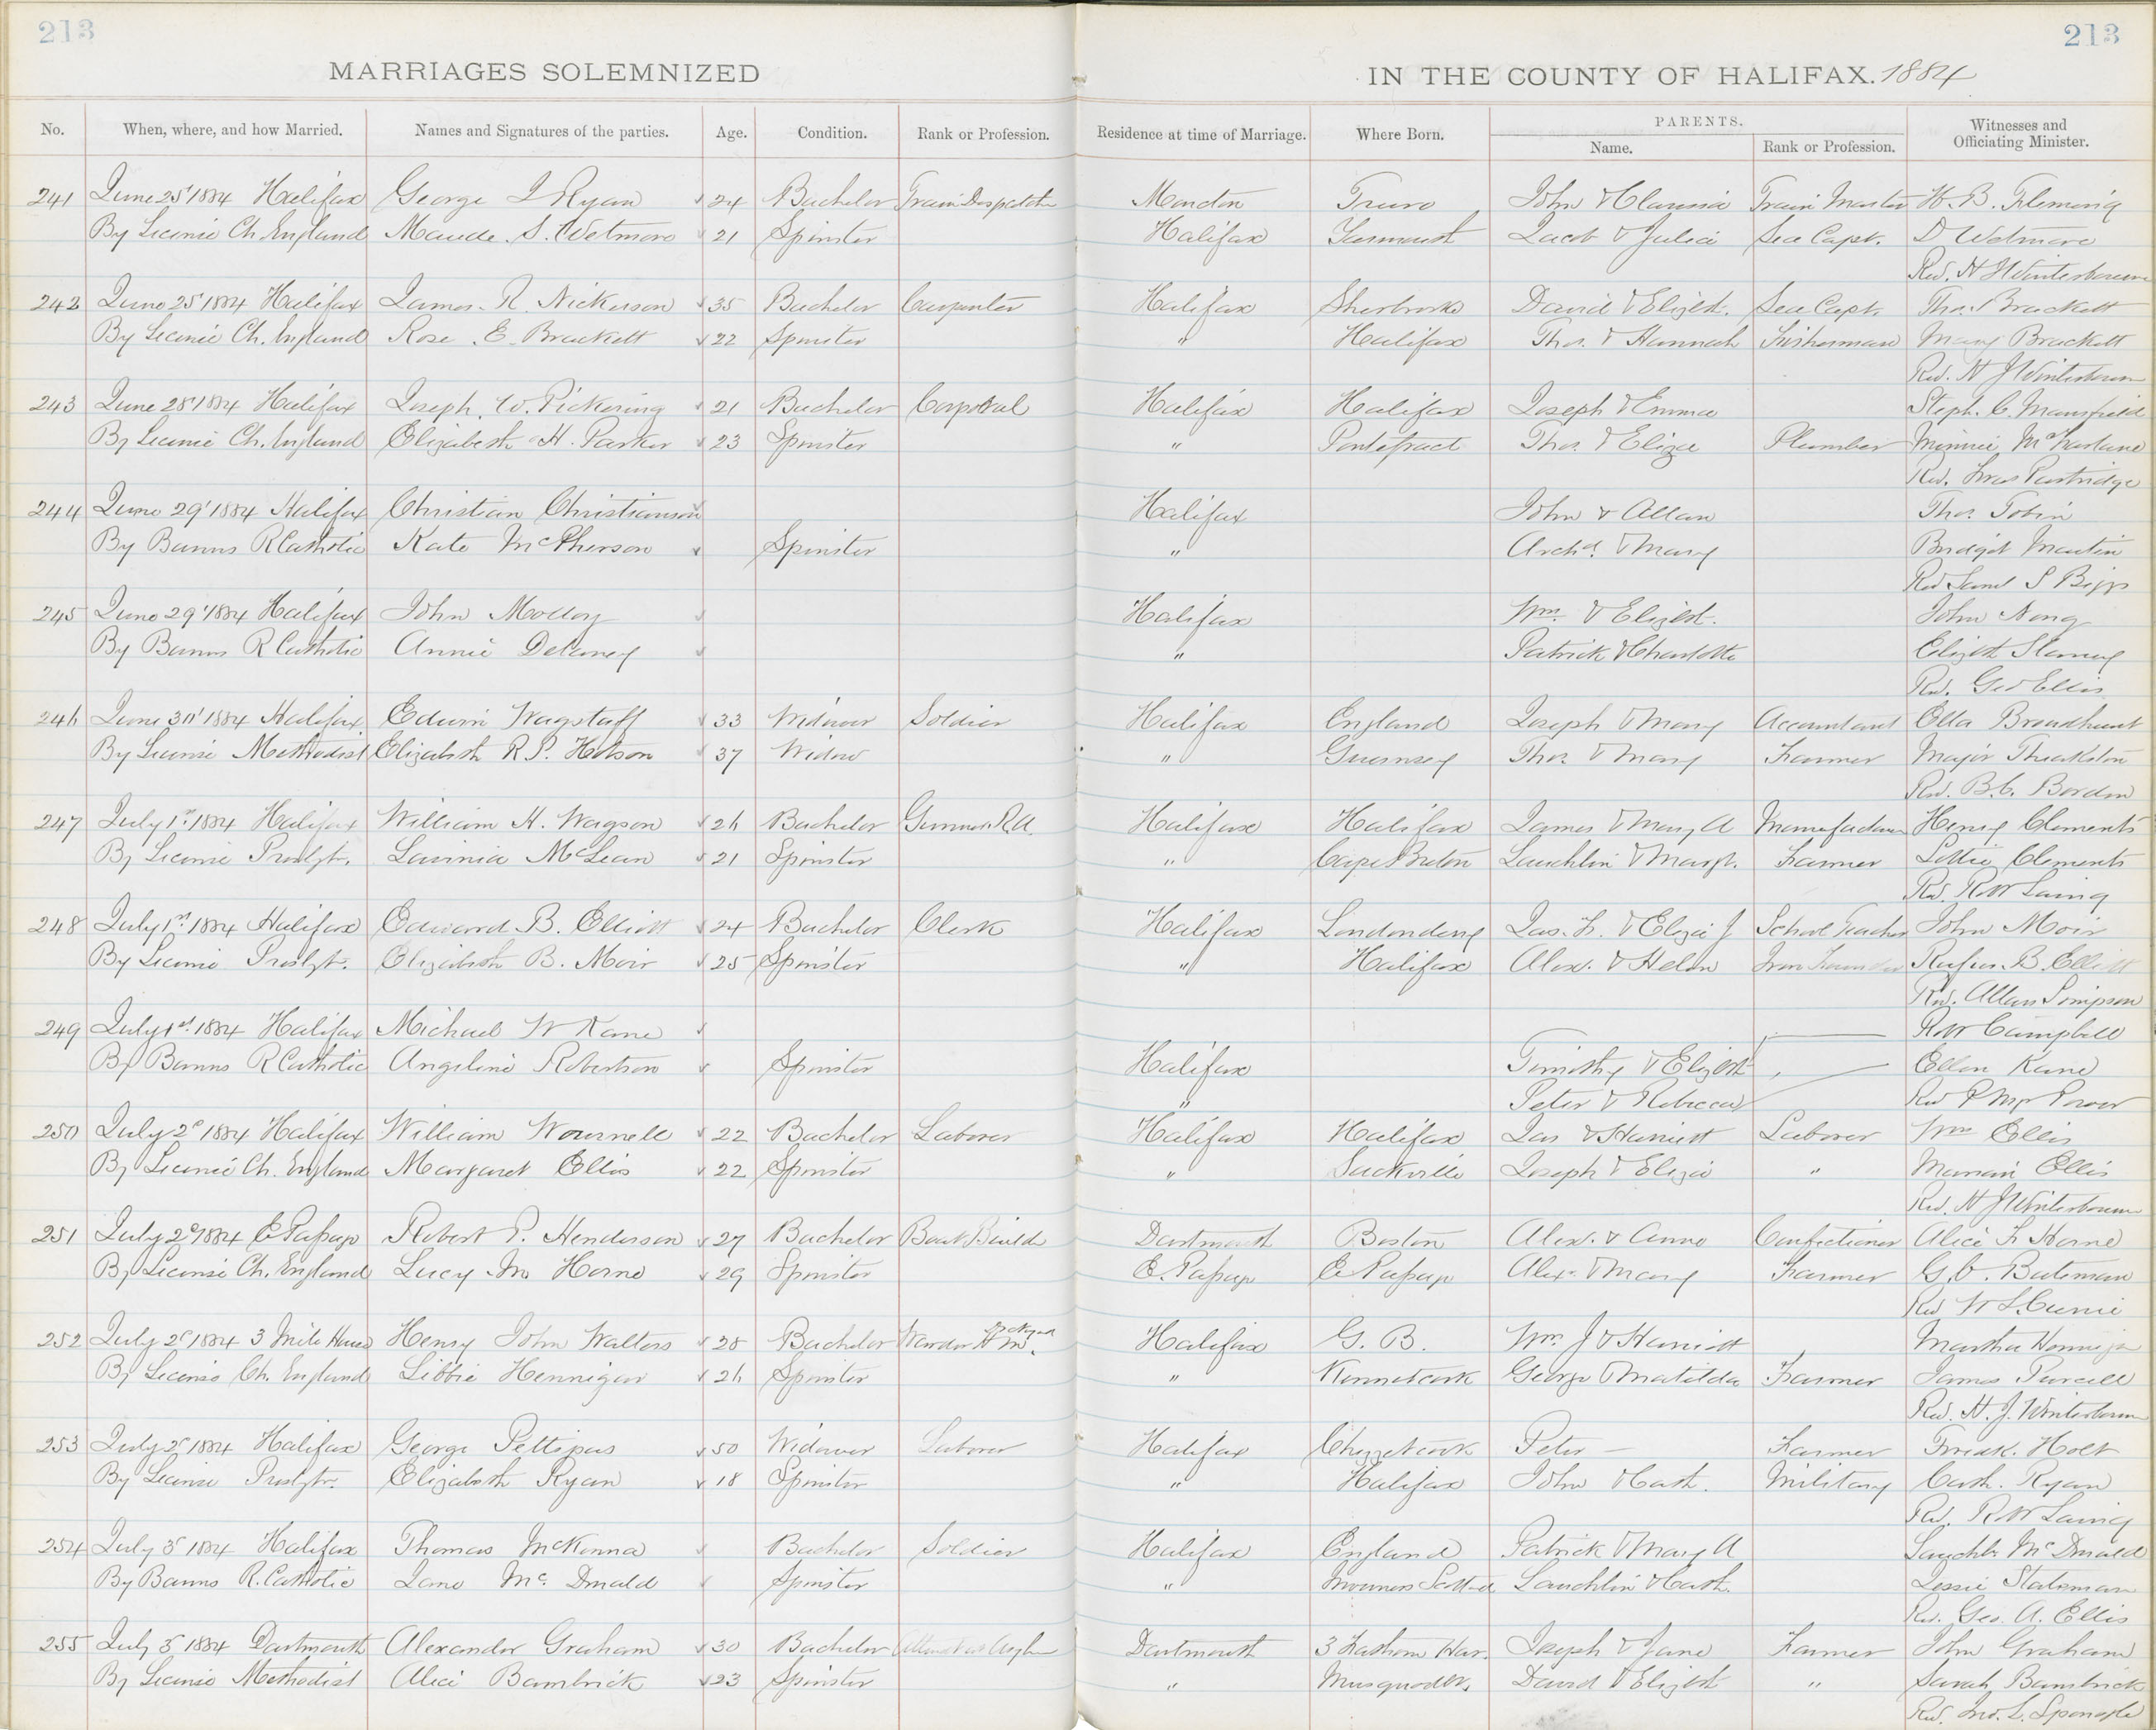 213 213
MARRIAGES SOLEMNIZED IN THE COUNTY OF HALIFAX. 1884
No. When, where, and how Married. Names and Signatures of the parties. Age. Condition. Rank or Profession. Residence at time of Marriage. Where Born. PARENTS. Name. Rank or Profession. Witnesses and Officiating Minister.
241 June 25' 1884 Halifax George I Ryan 24 Bachelor Train Despatcher Moncton Truro John & Clarissa Train Master H. B. Fleming
By License Ch. England Maude. S. Wetmore 21 Spinster Halifax Yarmouth Jacob & Julia Sea Capt. D Wetmore
Rev. H J Winterbourne
242 June 25' 1884 Halifax James. R. Nickerson 35 Bachelor Carpenter Halifax Sherbrooke David & Elizbt. Sea Capt. Thos. Brackett
By License Ch. England Rose. E. Brackett 22 Spinster " Halifax Thos. & Hannah Fisherman Mary Brackett
Rev. H J Winterbourne
243 June 28' 1884 Halifax Joseph. W. Pickering 21 Bachelor Corporal Halifax Halifax Joseph & Emma Steph. C. Mansfield
By License Ch. England Elizabeth H. Parker 23 Spinster " Pontefract Thos. & Eliza Plumber Minnie McFarlane
Rev. Fras Partridge
244 June 29' 1884 Halifax Christian Christianson Halifax John & Allan Thos. Tobin
By Banns R Catholic Kate McPherson Spinster " Archd. & Mary Bridget Martin
Rev S Biggs
245 June 29' 1884 Halifax John Molloy Halifax Wm. & Elizbt. John Nong
By Banns R Catholic Annie Delaney " Patrick & Charlotte Elizbth
Rev. Geo Ellis
246 June 30' 1884 Halifax Edwin Wagstaff 33 Widower Soldier Halifax England Joseph & Mary Accountant Ella Broadhurst
By License Methodist Elizabeth R. P. Hobson 37 Widow " Guernsey Thos. & Mary Farmer Major Theakston
Rev. B. C. Borden
247 July 1st 1884 Halifax William H. Wagson 26 Bachelor Gunner R.A. Halifax Halifax James & Mary A Manufacturer Henry Clements
By License Presbyt. Lavinia McLean 21 Spinster " Cape Breton Lauchlin & Margt. Farmer Lottie Clements
Rev. R W Laing
248 July 1st 1884 Halifax Edward. B. Elliott 24 Bachelor Clerk Halifax Londonderry Jas. F. & Eliza J School Teacher John Moir
By License Presbyt. Elizabeth B. Moir 25 Spinster " Halifax Alex. & Helen Iron Founder Rufus. B. Elliott
Rev. Allan Simpson
249 July 1st 1884 Halifax Michael W Kane R W Campbell
By Banns R Catholic Angeline Robertson Spinster Halifax Timothy & Elizbth Ellen Kane
" Peter & Rebecca Rev P Power
250 July 2d 1884 Halifax William Wournell 22 Bachelor Laborer Halifax Halifax Jas & Harriett Laborer Wm Ellis
By License Ch. England Margaret Ellis 22 Spinster " Sackville Joseph & Eliza " Ellis
Rev. H J Winterbourne
251 July 2d 1884 E Passage Robert P. Henderson 27 Bachelor Boat Builder Dartmouth Boston Alex. & Anne Confectioner Alice F Horne
By License Ch. England Lucy M Horne 29 Spinster E. Passage E Passage Alex. & Mary Farmer G. C. Bateman
Rev W L Currie
252 July 2d 1884 3 Mile House Henry John Walters 28 Bachelor Warder H M. Dockyard Halifax G. B. Wm. J & Harriett Martha Hennigar
By License Ch. England Libbie Hennigar 26 Spinster " Kennetcook George & Matilda Farmer James Purcell
Rev. H. J. Winterbourne
253 July 2d 1884 Halifax George Pettipas 50 Widower Laborer Halifax Chezzetcook Peter — Farmer Fredk. Holt
By License Presbytr. Elizabeth Ryan 18 Spinster " Halifax John & Cath. Military Cath. Ryan
Rev. R W Laing
254 July 3d 1884 Halifax Thomas McKenna Bachelor Soldier Halifax England Patrick & Mary A Lauchln McDonald
By Banns R. Catholic Jane McDonald Spinster " Inverness Scotland Lauchlin & Cath. Jessie Stateman
Rev. Geo. A. Ellis
255 July 3d 1884 Dartmouth Alexander Graham 30 Bachelor Attendant Asylum Dartmouth 3 Fathom Har. Joseph & Jane Farmer John Graham
By License Methodist Alice Bambrick 23 Spinster " Musquodbt. David & Elizbth " Sarah Bambrick
Rev. Jno. L. Sponagle